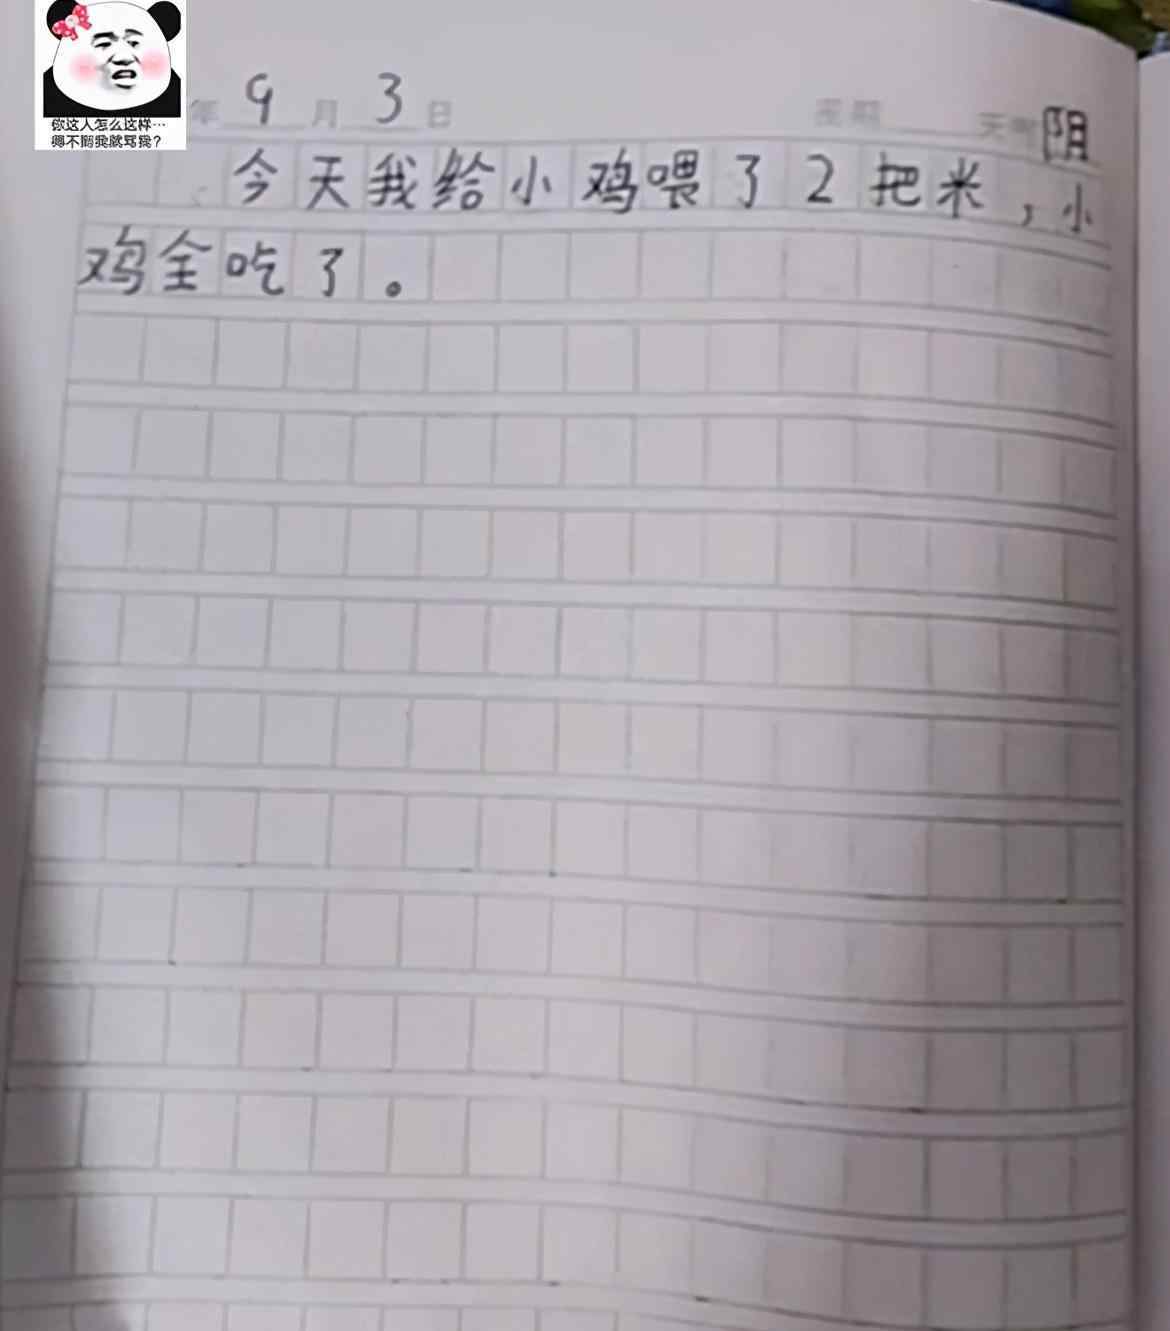 你这人怎么这样…
得不到我就骂我？
年 9 月 3 日 星期 天气 阴
今天我给小鸡喂了2把米，小
鸡全吃了。